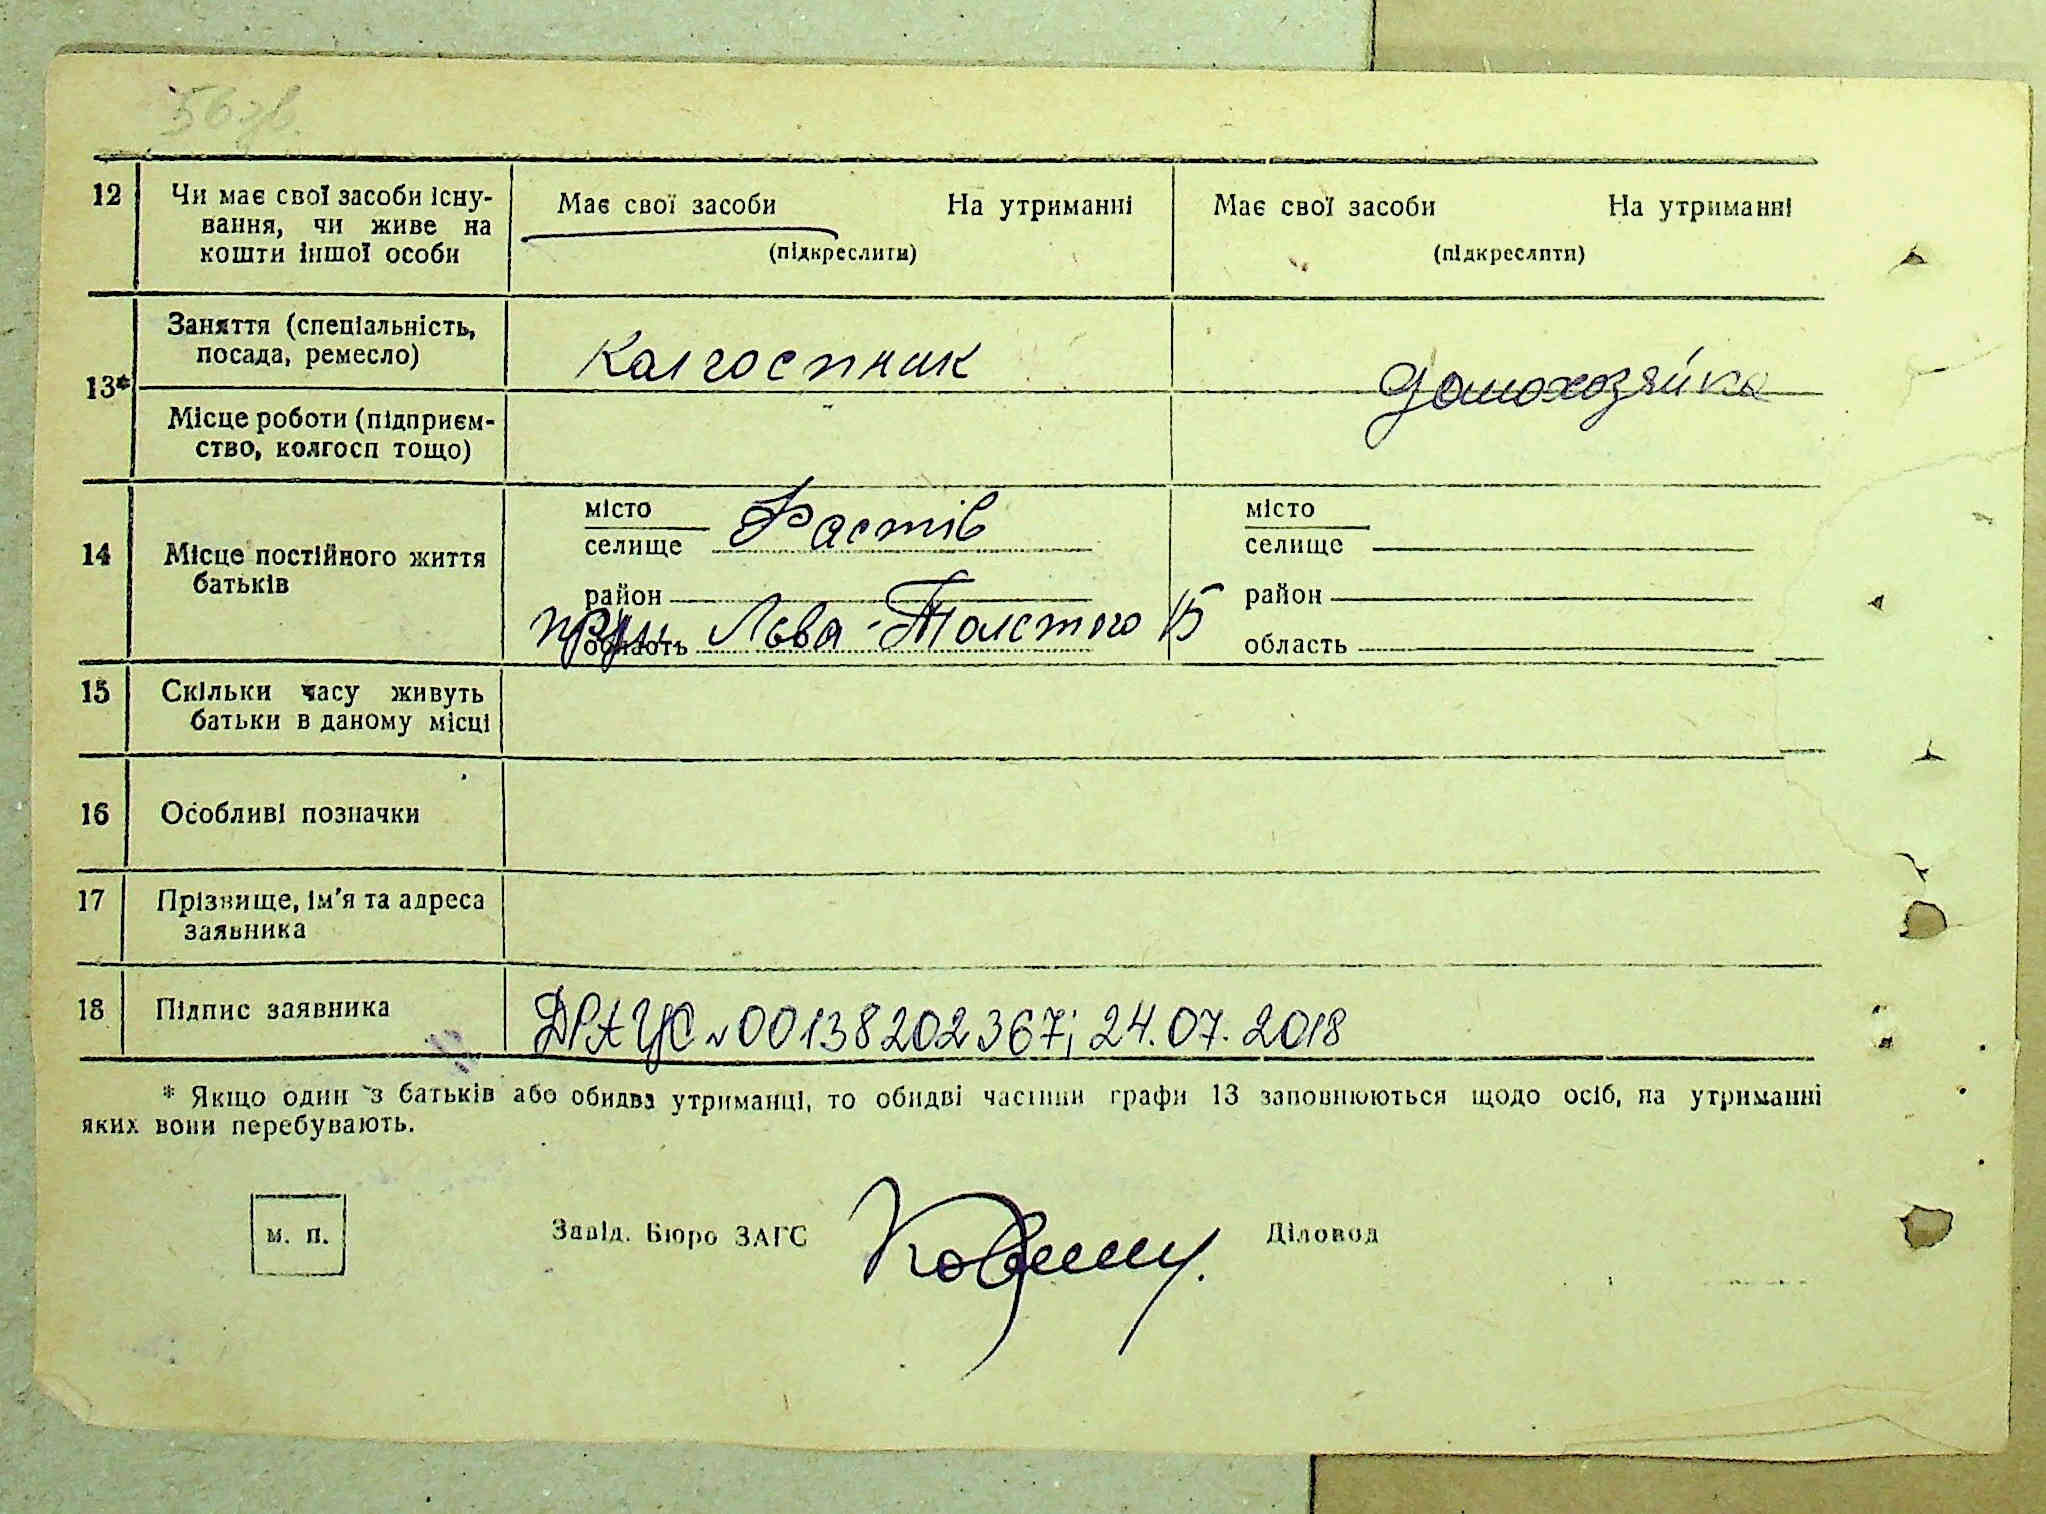 56 зв.
12 Чи має свої засоби існу-
вання, чи живе на
кошти іншої особи
Має свої засоби На утриманні
(підкреслити)
Має свої засоби На утриманні
(підкреслити)
13* Заняття (спеціальність,
посада, ремесло)
Колгоспник
домохозяйка
Місце роботи (підприєм-
ство, колгосп тощо)
14 Місце постійного життя
батьків
місто
селище Фастів
район
область Льва-Толстого 15
місто
селище
район
область
15 Скільки часу живуть
батьки в даному місці
16 Особливі позначки
17 Прізвище, ім'я та адреса
заявника
18 Підпис заявника
ДРАЦС № 00138202367; 24.07.2018
* Якщо один з батьків або обидва утриманці, то обидві частини графи 13 заповнюються щодо осіб, на утриманні
яких вони перебувають.
м. п.
Завід. Бюро ЗАГС
Діловод